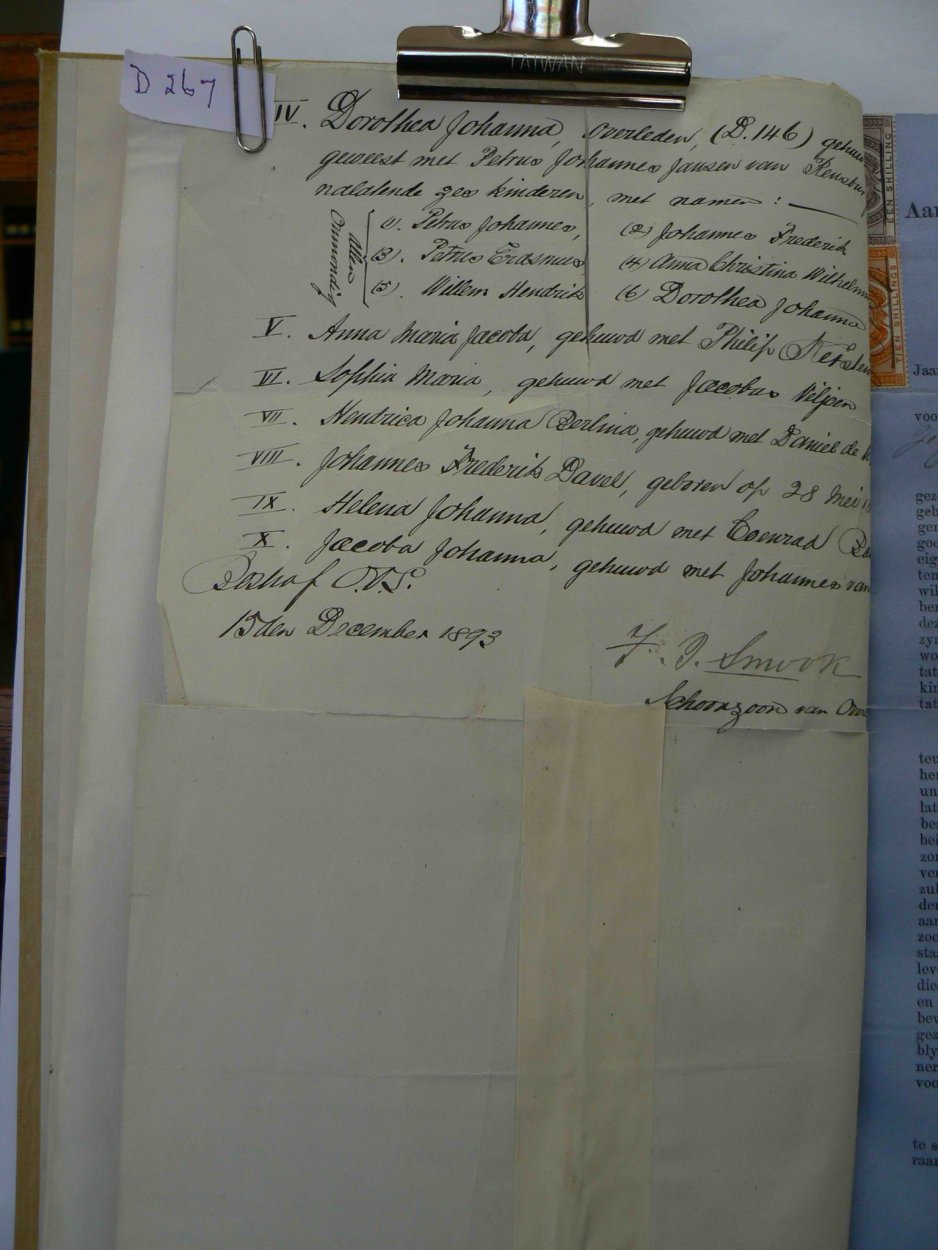 TAIWAN
D 267
IV. Dorothea Johanna, Overleden, (D. 146)
geweest met Petrus Johannes Jansen van
nalatende zes kinderen, met namen :
Allen Onmondig
(1). Petrus Johannes, (2) Johannes Frederik
(3). Petrus Erasmus (4) Anna Christina
(5). Willem Hendrik (6) Dorothea Johanna
V. Anna Maria Jacoba, gehuwd met Philip
VI. Sophia Maria, gehuwd met Jacobus Viljoen
VII. Hendrica Johanna Berlina, gehuwd met Daniel de
VIII. Johannes Frederik Davel, geboren op 28 Mei
IX. Helena Johanna, gehuwd met Coenrad
X. Jacoba Johanna, gehuwd met Johannes van
Boshof O.V.S.
15den December 1893
F. D. Smook
Schoonzoon van
EEN SHILLING
TIEN SHILLINGS
Aan
Jaar
voo
gez
geb
gen
goo
eig
ten
wil
ber
dez
zyn
wo
tat
kin
tat
teu
her
un
lat
bes
bei
zor
ver
zul
der
aar
zoo
sta
lev
die
en
bev
gez
bly
ner
voo
te s
raar